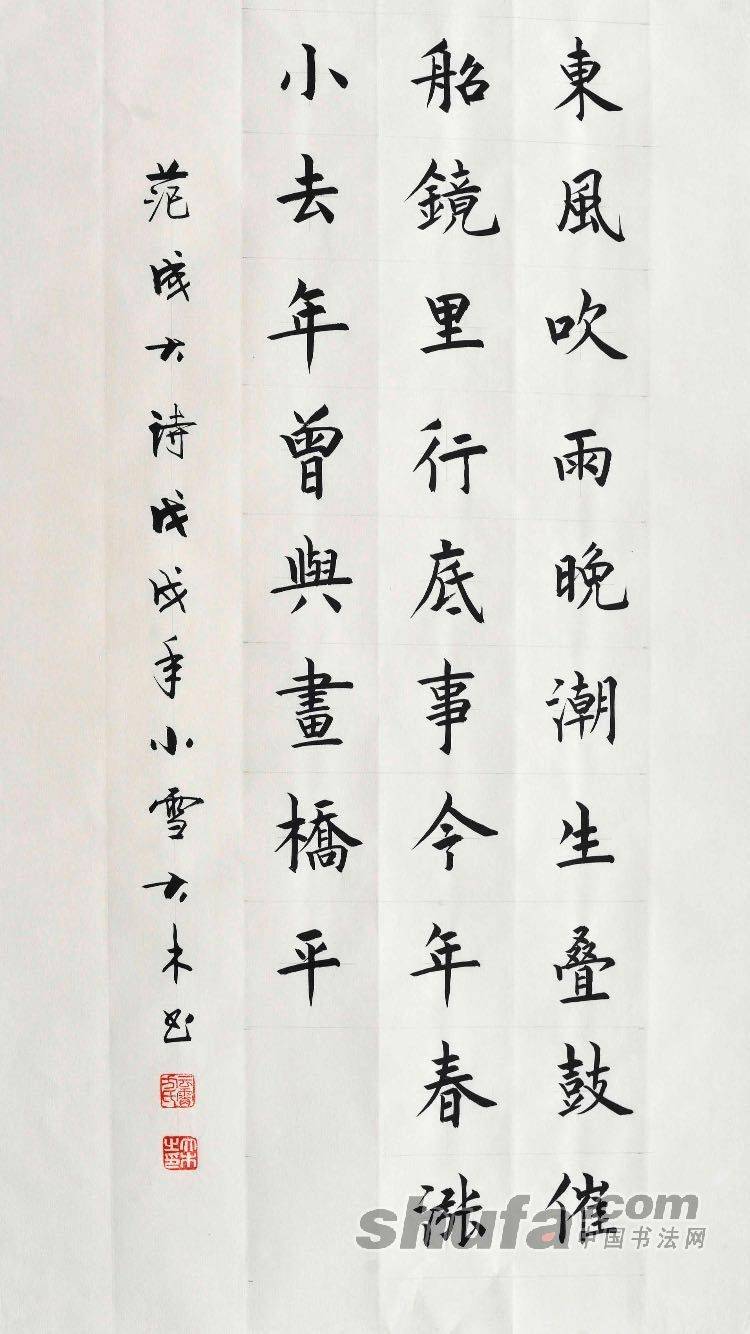 東風吹雨晚潮生叠鼓催
船鏡里行底事今年春漲
小去年曾與畫橋平
范成大诗戊戌年小雪大木书
shufa.com
中国书法网